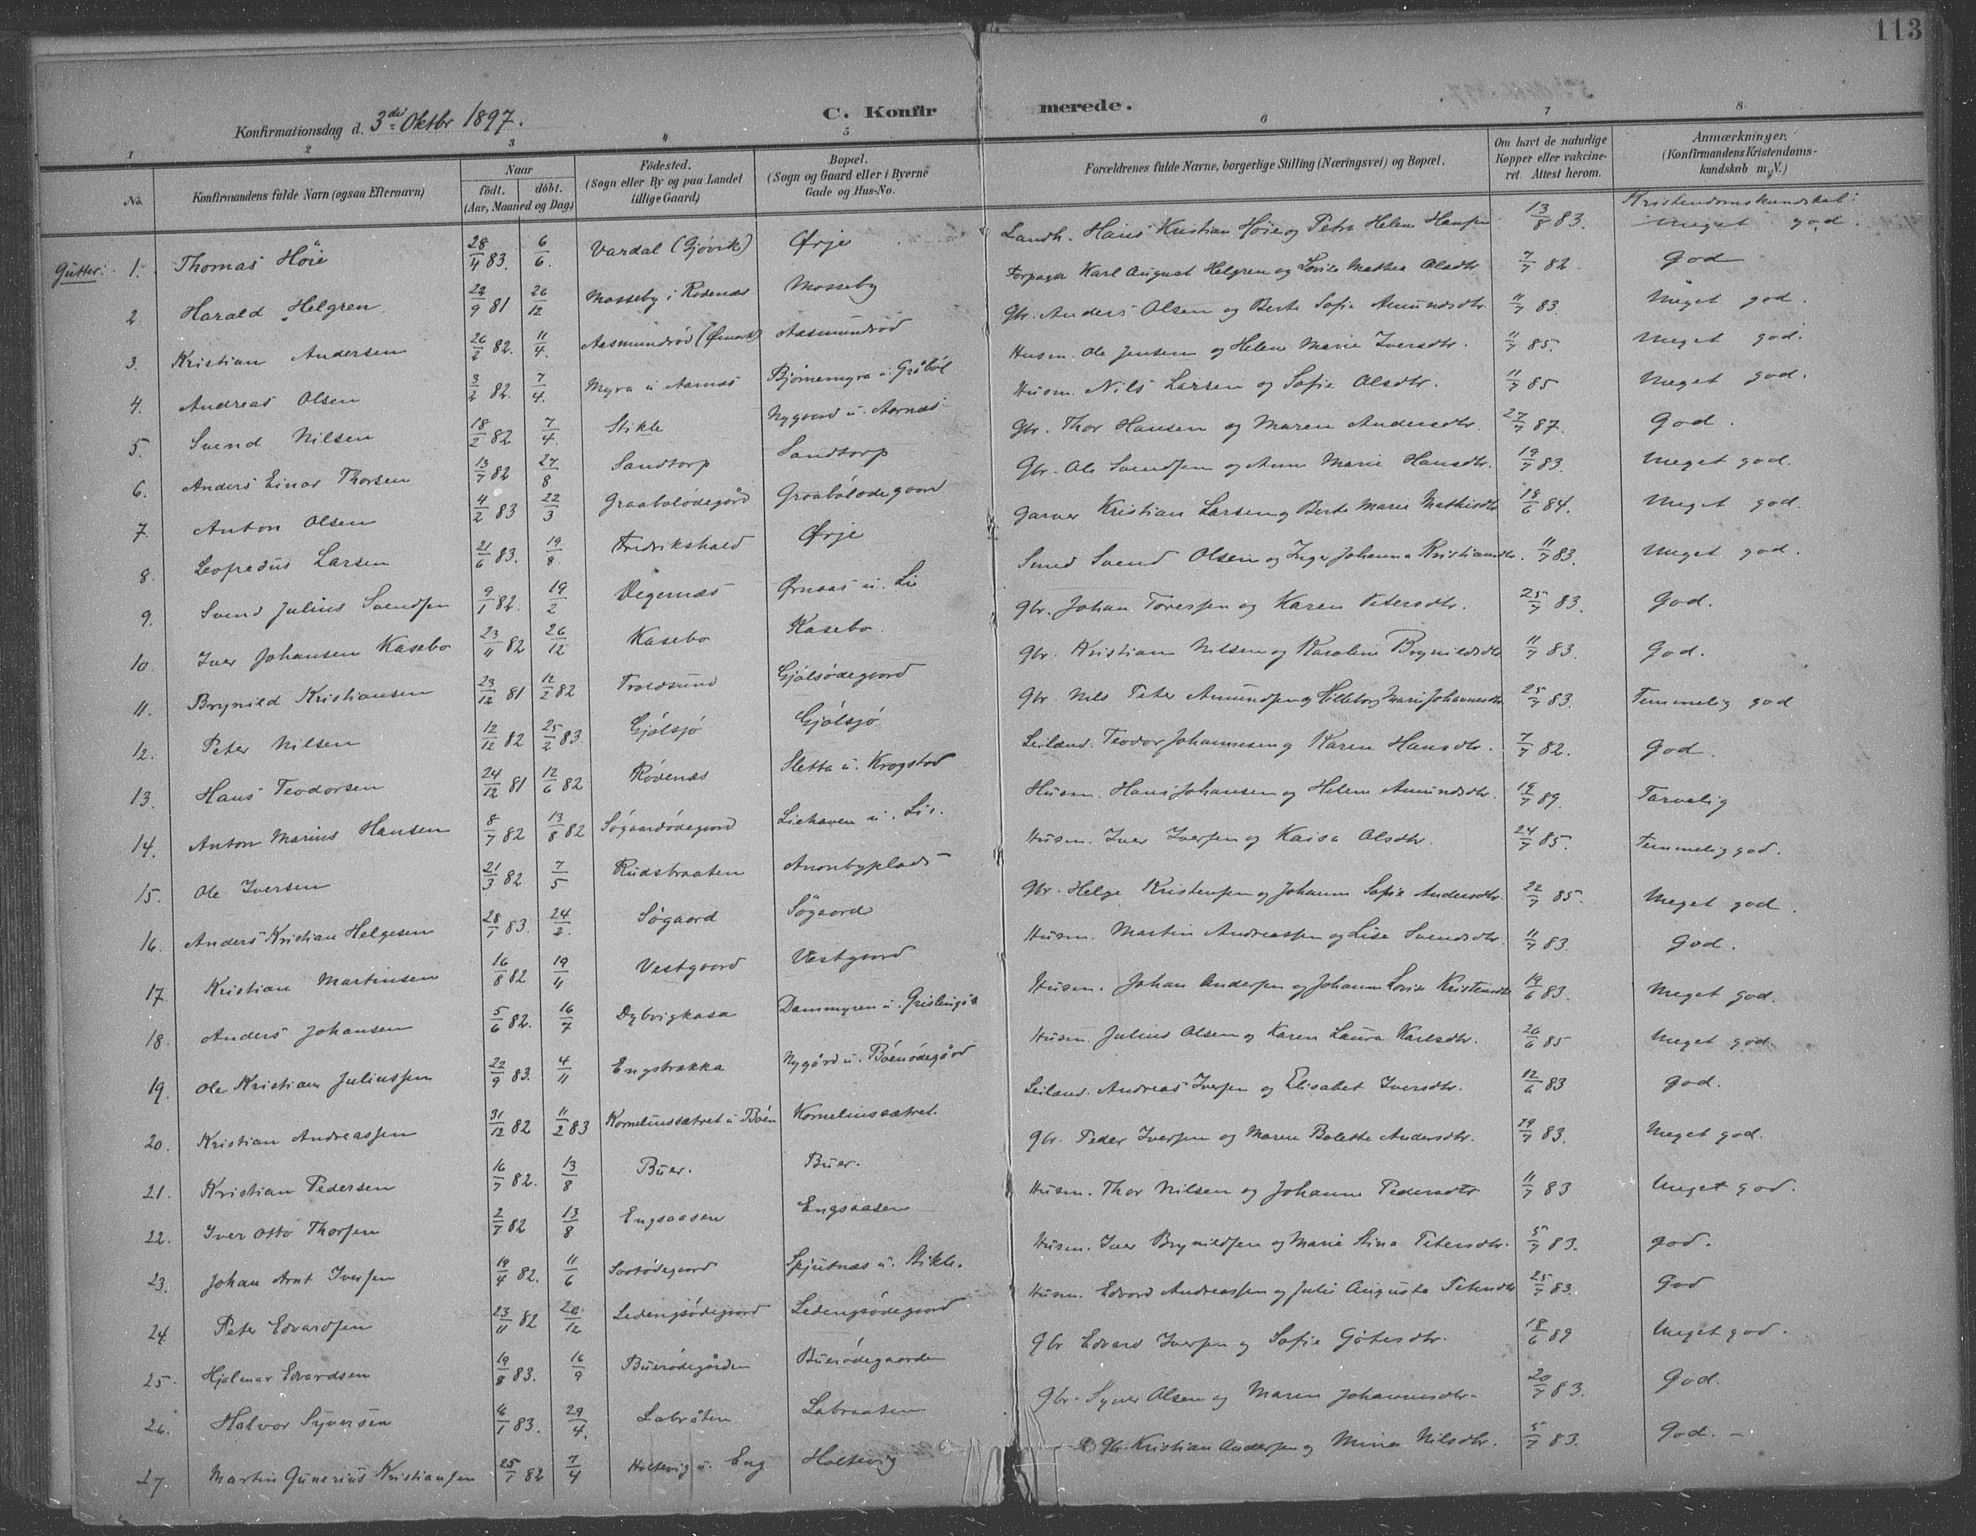 113
Konfirmationsdag d. 3die Oktbr 1897.
C. Konfirmerede.
1 2 3 4 5 6 7 8
No. Konfirmandens fulde Navn (ogsaa Efternavn) Naar födt. döbt. (Aar, Maaned og Dag) Födested. (Sogn eller By og paa Landet tillige Gaard) Bopæl. (Sogn og Gaard eller i Byerne Gade og Hus-No. Forældrenes fulde Navne, borgerlige Stilling (Næringsvei) og Bopæl. Om havt de naturlige Kopper eller vakcineret. Attest herom. Anmærkninger. (Konfirmandens Kristendomskundskab m. V.)
Gutter: 1. Thomas Höie 28/4 83. 6/6. Vardal (Gjövik) Ørje Landh. Hans Kristian Höie og Petra Helene Hansen 13/8 83. Kristendomskundskab: meget god.
2. Harald Helgren 22/9 81 26/12 Mosseby i Rödenæs Mosseby Forpagter Karl August Helgren og Lovise Mathea Olsdtr 7/7 82. God
3. Kristian Andersen 26/2 82. 11/4. Aasmundröd (Ømark) Aasmundröd Gbr. Anders Olsen og Berte Sofie Amundsdtr. 11/7 83. Meget god.
4. Andreas Olsen 3/2 82. 7/4. Myra u. Aarnæs Bjørnemyra u. Gråböl Husm. Ole Jensen og Helene Marie Iversdtr. 11/7 85. Meget god.
5. Svend Nilsen 18/2 82 7/4. Stikle Nygaard u. Aarnæs Husm. Nils Larsen og Sofie Olsdtr. 11/7 85 Meget god.
6. Anders Einar Thorsen 13/7 82 27/8 Sandtorp Sandtorp Gbr. Thor Hansen og Maren Andersdtr. 27/7 87. God.
7. Anton Olsen 4/2 83 22/3 Graabölödegård Graabölödegaard Gbr. Ole Svendsen og Anne Marie Hansdtr. 19/7 83. Meget god.
8. Leofredus Larsen 21/6 83. 19/8. Fredrikshald Ørje Garver Kristian Larsen og Berte Marie Mathisdtr 18/6 84. Meget god.
9. Svend Julius Svendsen 9/1 82. 19/2 Degernæs Ørnaas u. Li Smed Svend Olsen og Inger Johanna Kristiansdtr. 11/7 83. Meget god.
10. Iver Johansen Kasebo 23/11 82 26/12 Kasebo Kasebo. Gbr. Johan Toresen og Karen Petersdtr. 25/7 83. God.
11. Brynild Kristiansen 23/12 81 12/2 82 Troldsund Gjölsödegaard Gbr. Kristian Nilsen og Karoline Brynildsdtr 11/7 83. God.
12. Peter Nilsen 12/12 82 25/2 83 Gjölsjö Gjölsjö Gbr. Nils Peter Amundsen og Hilleborg Marie Johannesdtr 25/7 83. Temmelig god
13. Hans Teodorsen 24/12 81 12/6 82 Rödenæs Sletta u. Krogstad Leiland. Teodor Johannesen og Karen Hansdtr. 7/7 82. God.
14. Anton Marius Hansen 8/7 82 13/8 82 Sögaardödegaard Liehaven u. Li. Husm. Hans Johansen og Helene Amundsdtr. 19/7 89. Tarvelig
15. Ole Iversen 21/3 82 7/5 Rudsbraaten Anonbyplads Husm. Iver Iversen og Kaisa Olsdtr. 24/7 85. Temmelig god.
16. Anders Kristian Helgesen 28/1 83. 24/2. Sögaard Sögaard Gbr. Helge Kristensen og Johanne Sofie Andersdtr. 22/7 85. Meget god.
17. Kristian Martinsen 16/8 82 19/11 Vestgaard Vestgaard Husm. Martin Andreassen og Lisa Svendsdtr. 11/7 83. God.
18. Anders Johansen 5/6 82. 16/7 Dybvigkasa Dammyren u. Grislingås Husm. Johan Andersen og Johanne Lovise Kristensdtr 19/6 83. Meget god.
19. Ole Kristian Juliussen 22/9 83. 4/11 Engsbakka Nygård u. Böenödegård Husm. Julius Olsen og Karen Laura Karlsdtr. 26/6 85 Meget god
20. Kristian Andreassen 31/12 82 11/2 83 Kornelinssætret u Böen Kornelinssætret. Leiland. Andreas Iversen og Elisabet Iversdtr. 12/6 83 God.
21. Kristian Pedersen 16/7 82. 13/8 Buer. Buer. Gbr. Peder Iversen og Maren Bolette Andersdtr. 29/7 83. Meget god.
22. Iver Otto Thorsen 2/7 82 13/8 Engsaasen Engsaasen Husm. Thor Nilsen og Johanne Pedersdtr. 11/7 83 Meget god.
23. Johan Arnt Iversen 19/4 82. 11/6 Sootödegaard Spjutnæs u. Stikle. Husm. Iver Brynildsen og Marie Stina Petersdtr. 5/7 83. God.
24. Peter Edvardsen 23/11 82 20/12 Ledengsödegaard Ledengsödegaard Husm. Edvard Andreassen og Julie Auguste Petersdtr 25/7 83. God
25. Hjalmar Edvardsen 19/8 83. 16/9 Buerödegården Buerödegaarden Gbr Edvard Iversen og Sofie Götesdtr. 18/6 89 Meget god.
26. Halvor Syversen 6/1 83. 29/4. Labråten Labraaten Gbr. Syver Olsen og Maren Johannesdtr. 20/7 83. God.
27. Martin Gunerius Kristiansen 25/1 82 7/4 Holtevig u. Eng Holtevig Gbr Kristian Andersen og Mina Nilsdtr. 5/7 83. God. –